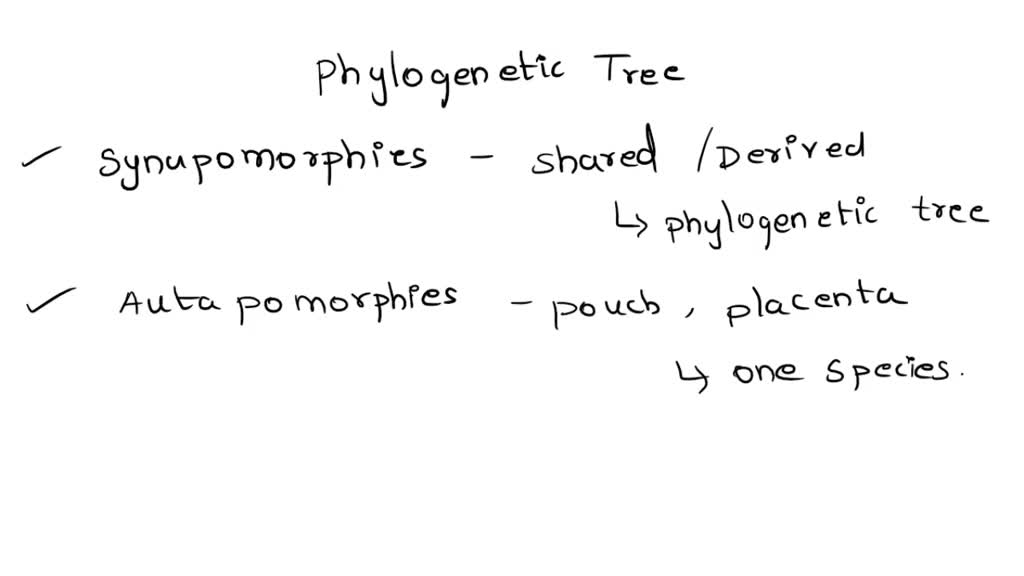 Phylogenetic Tree
✓ Synupomorphies - shared / Derived
↳ phylogenetic tree
✓ Autapomorphies - pouch, placenta
↳ one species.